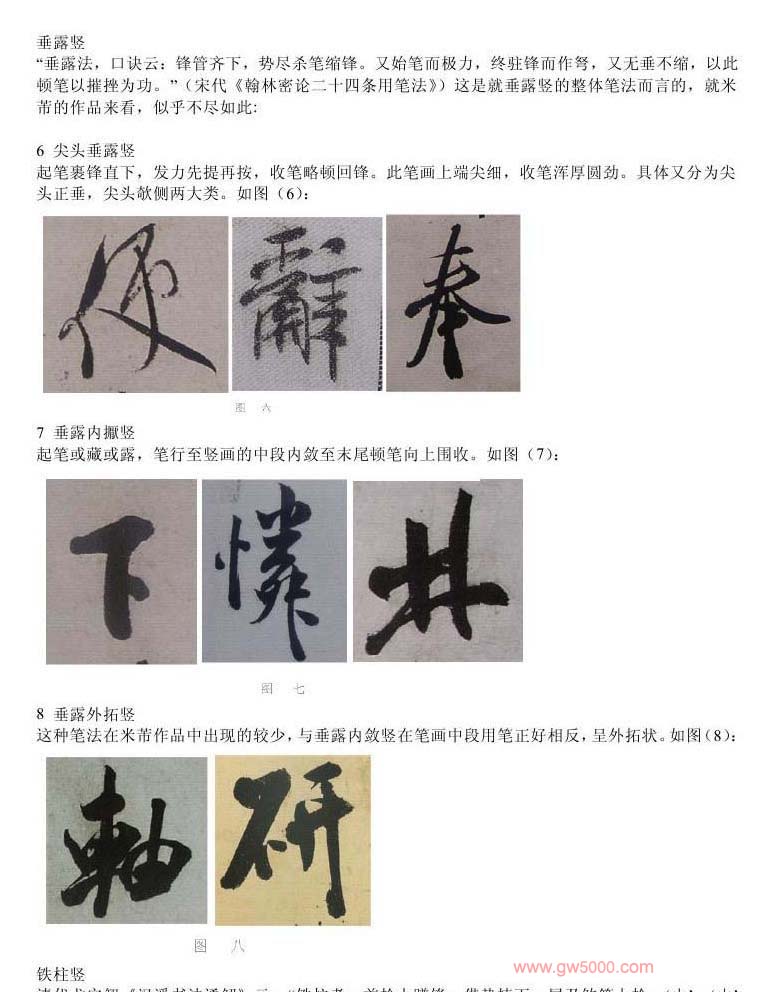 垂露竖
“垂露法，口诀云：锋管齐下，势尽杀笔缩锋。又始笔而极力，终驻锋而作弩，又无垂不缩，以此
顿笔以摧挫为功。”（宋代《翰林密论二十四条用笔法》）这是就垂露竖的整体笔法而言的，就米
芾的作品来看，似乎不尽如此：
6 尖头垂露竖
起笔裹锋直下，发力先提再按，收笔略顿回锋。此笔画上端尖细，收笔浑厚圆劲。具体又分为尖
头正垂，尖头欹侧两大类。如图（6）：
辭 奉
图 六
7 垂露内擫竖
起笔或藏或露，笔行至竖画的中段内敛至末尾顿笔向上围收。如图（7）：
下 憐 井
图 七
8 垂露外拓竖
这种笔法在米芾作品中出现的较少，与垂露内敛竖在笔画中段用笔正好相反，呈外拓状。如图（8）：
軸 研
图 八
www.gw5000.com
铁柱竖